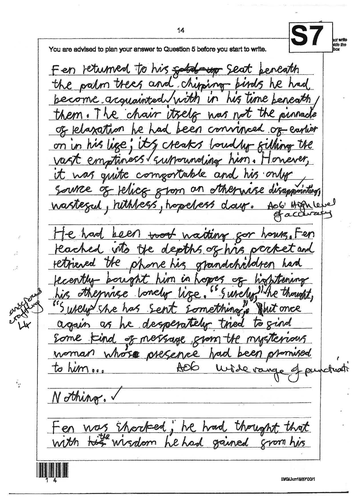 14
S7
You are advised to plan your answer to Question 5 before you start to write.
Fen returned to his seat beneath
the palm trees and chirping birds he had
become acquainted with in his time beneath
them. The chair itself was not the pinnacle
of relaxation he had been convinced of earlier
on in his life; its creaks loudly filling the
vast emptiness surrounding him. However,
it was quite comfortable and his only
source of relief from an otherwise disappointing,
wasteful, ruthless, hopeless day. AO6 High level
of accuracy
He had been waiting for hours. Fen
reached into the depths of his pocket and
retrieved the phone his grandchildren had
recently bought him in hopes of lightening
his otherwise lonely life. "Surely," he thought,
"Surely she has sent something." But once
again as he desperately tried to find
some kind of message from the mysterious
woman whose presence had been promised
to him...
AO6 wide range of punctuation
L4
Nothing. ✓
Fen was shocked; he had thought that
with the wisdom he had gained from his
1 4